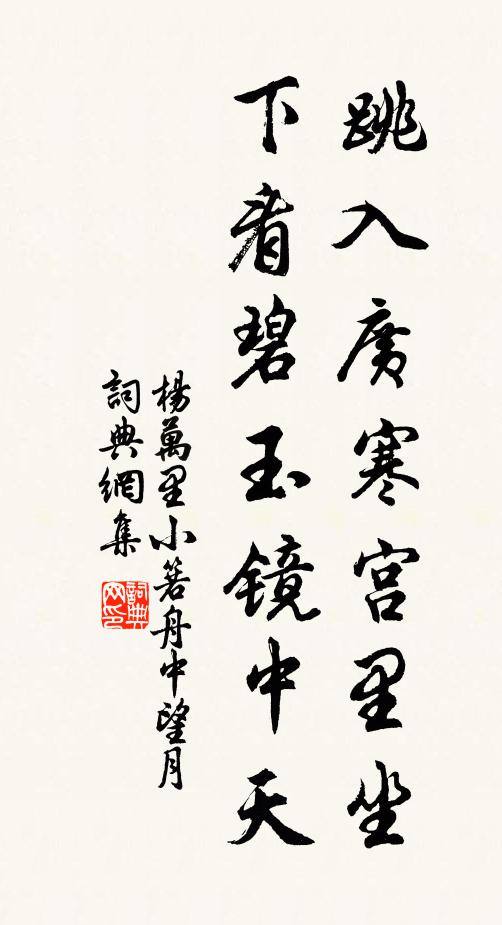 跳入廣寒宫里坐
下看碧玉鏡中天
楊萬里小箬舟中望月
詞典網集
詞典网印